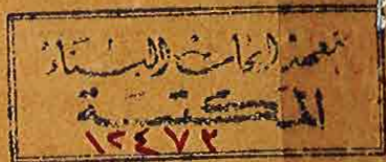 معهد ابحاث البناء
المكتبة
١٢٤٧٢